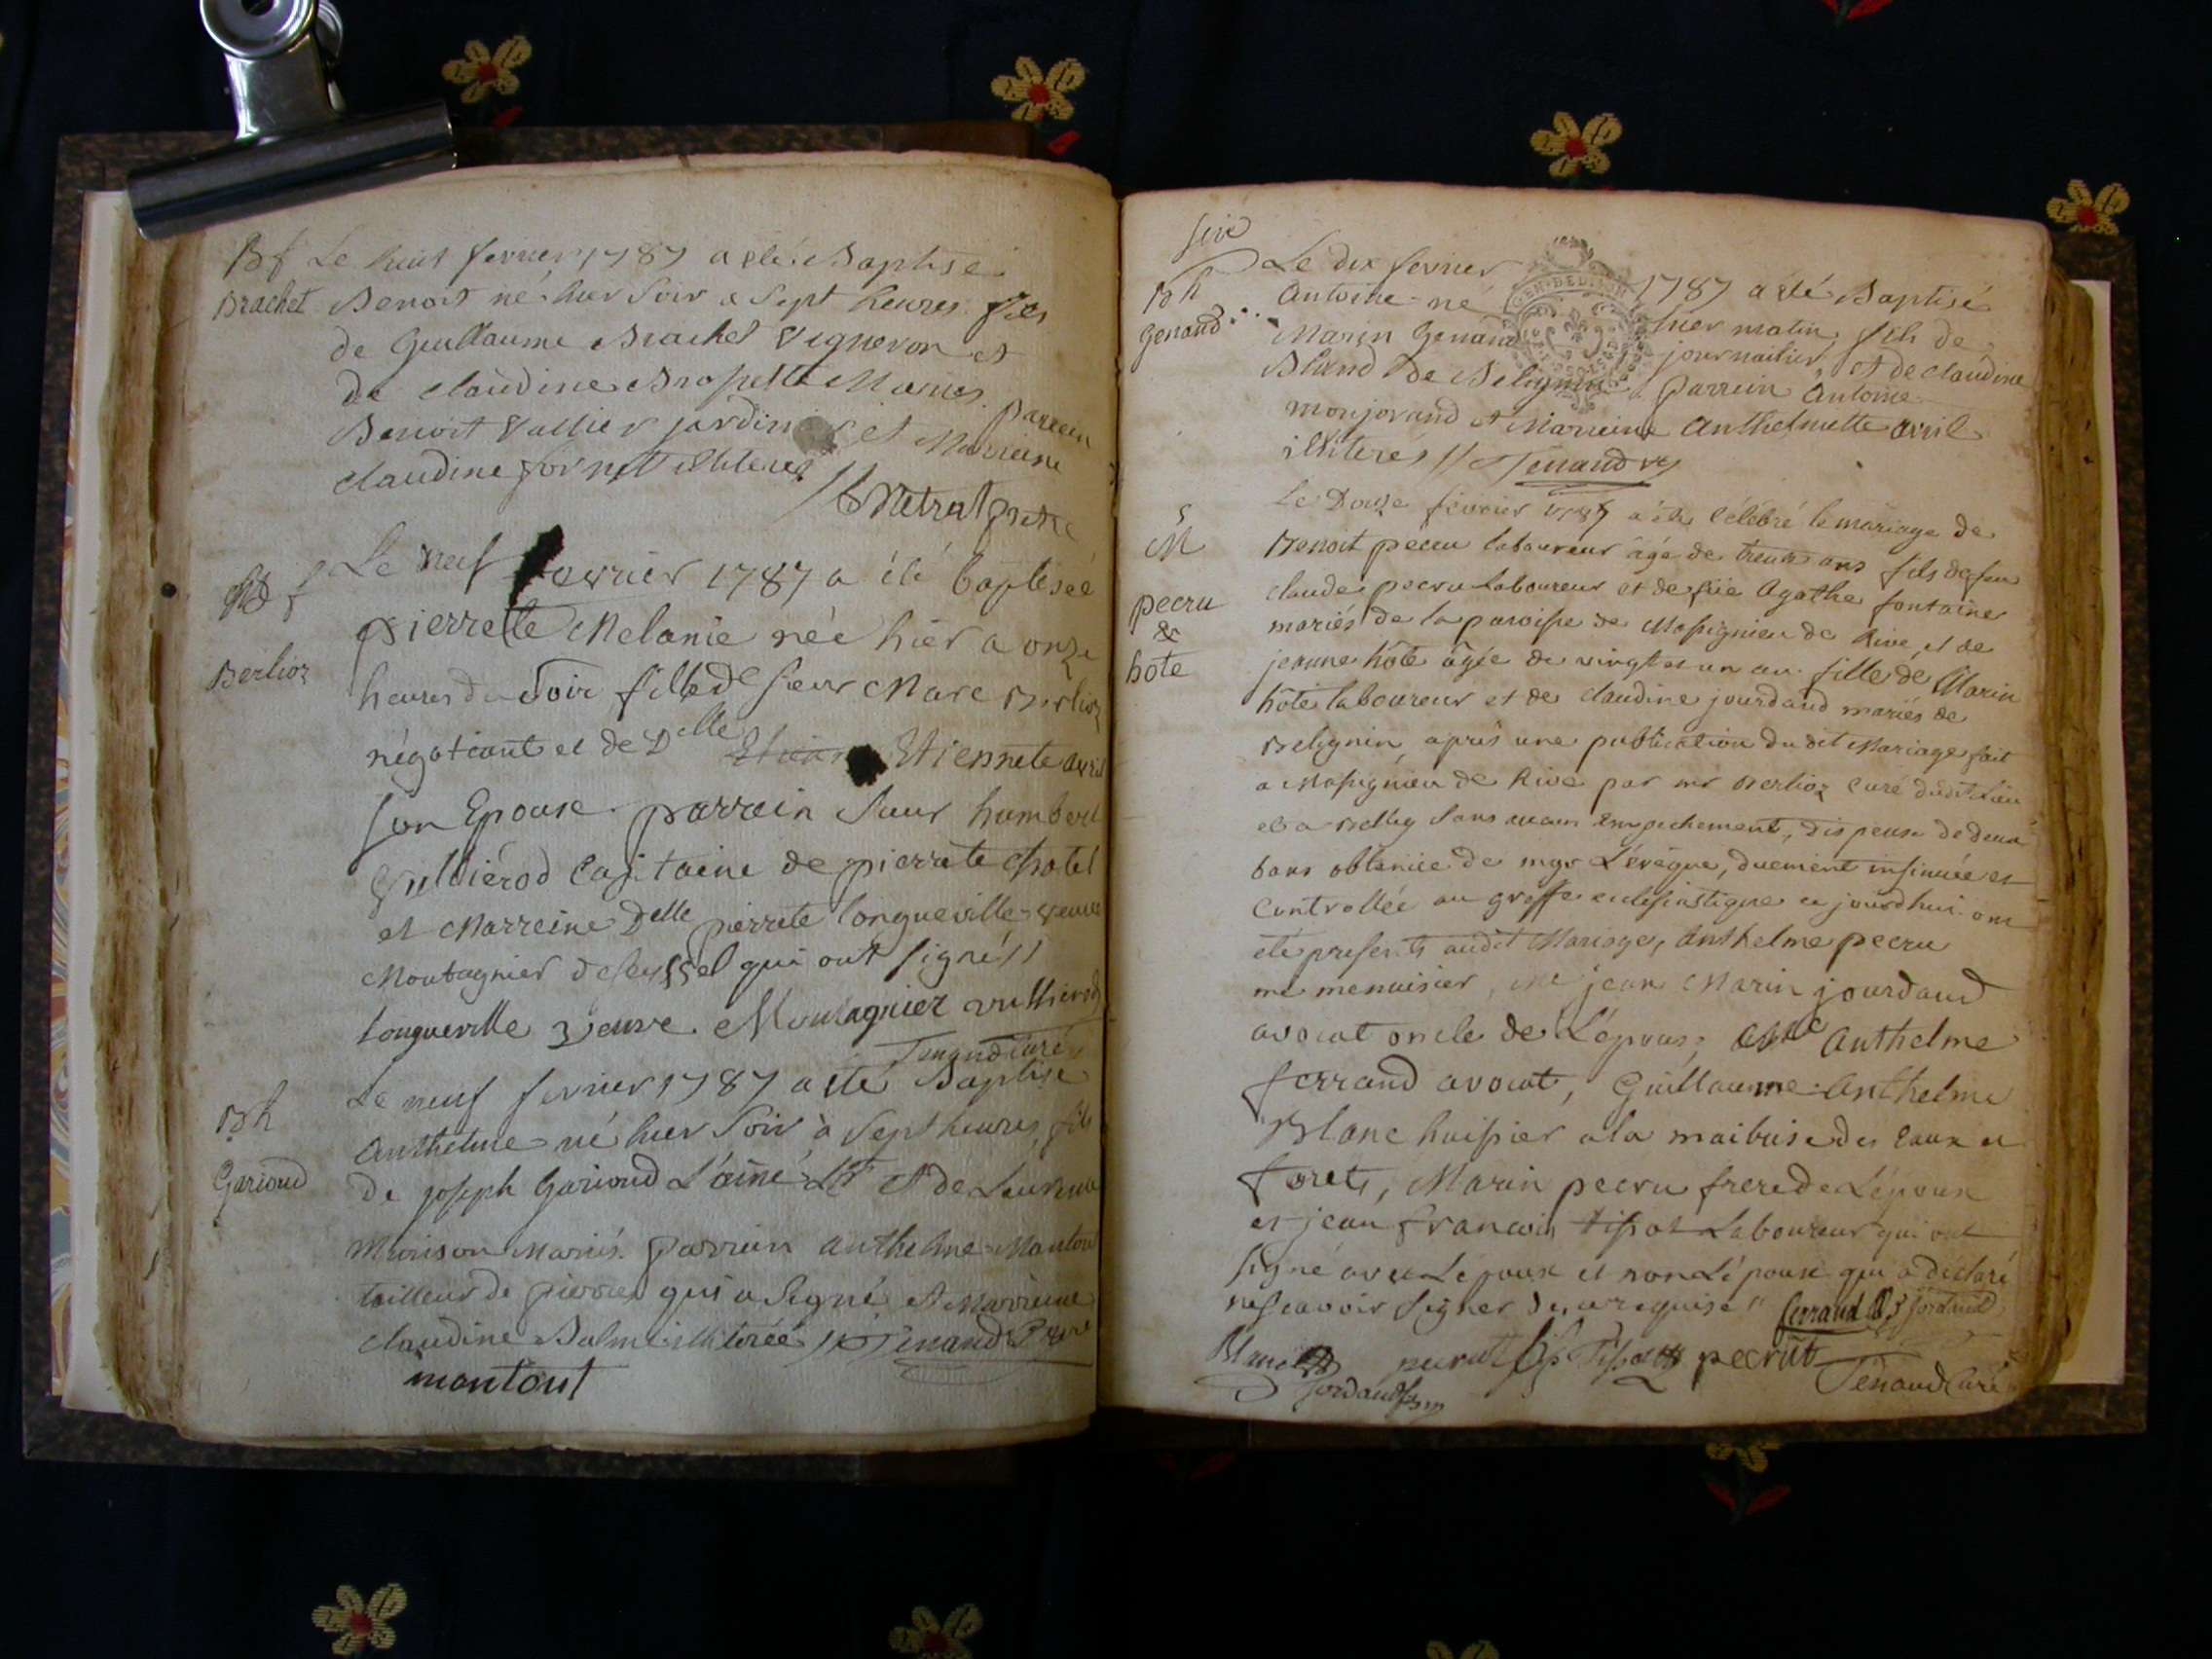 Bf Le huit fevrier 1787 a été Baptisé
Brachet Benoit né hier soir a sept heures fils
de Guillaume Brachet Vigneron et
de Claudine Mariés parrein
Benoit Vallier jardinier et Marreine
claudine illiteres
// Netrat pretre
Le neuf fevrier 1787 a été baptisée
pierrette Melanie née hier a onze
Berlioz
heures du soir fille de sieur Marc Berlioz
négotiant et de Delle Etiennete avril
son Epouse. parrain sieur humbert
vulliérod Capitaine de pierrete chatel
et Marreine Delle pierrete longueville veuve
Montagnier de seyssel qui ont signé //
Longueville veuve Montagnier vullierod
Tenand Curé
Le neuf fevrier 1787 a été Baptisé
Bh
Anthelme né hier soir à sept heures, fils
Garioud
de joseph Garioud L'ainé et de
Mariés. parrein anthelme Montout
tailleur de pierres qui a signé et Marreine
claudine illiterée // Tenand
montout
Le dix fevrier 1787 a été Baptisé
Bh
Antoine né hier matin, fils de
Genand
Marin Genand journailier, et de claudine
Bland de Belignin parrein Antoine
monjovand et Marreine Anthelmette avril
illiterés // Tenand
Le Douze fevrier 1787 a été célébré le mariage de
5
M
Benoit pecru laboureur âgé de trente ans fils de feu
claude pecru laboureur et de füe Agathe fontaine
pecru
&
mariés de la paroisse de Massignieu de Rive, et de
hote
jeanne hôte âgée de vingt et un an fille de Marin
hôte laboureur et de claudine jourdand mariés de
Belignin, après une publication du dit Mariage fait
a Massignieu de Rive par mr Berlioz curé dudit Lieu
et a Belley sans aucun empechement, dispense de deux
bans obtenüe de mgr L'évêque, duement insinuée et
Controllée au greffe eclésiastique ce jourd'hui. ont
été presents audit Mariage, Anthelme pecru
me menuisier, me jean Marin jourdand
avocat oncle de L'épouse, Me Anthelme
ferrand avocat, Guillaume Anthelme
Blanc huissier a la maitrise des Eaux et
forets, Marin pecru frere de L'époux
et jean francois tissot Laboureur qui ont
signé avec L'époux et non L'épouse qui a déclaré
ne scavoir signer de ce requise // ferrand jordand
Blanc pecrut Tissot pecrut
jordand Tenand Curé